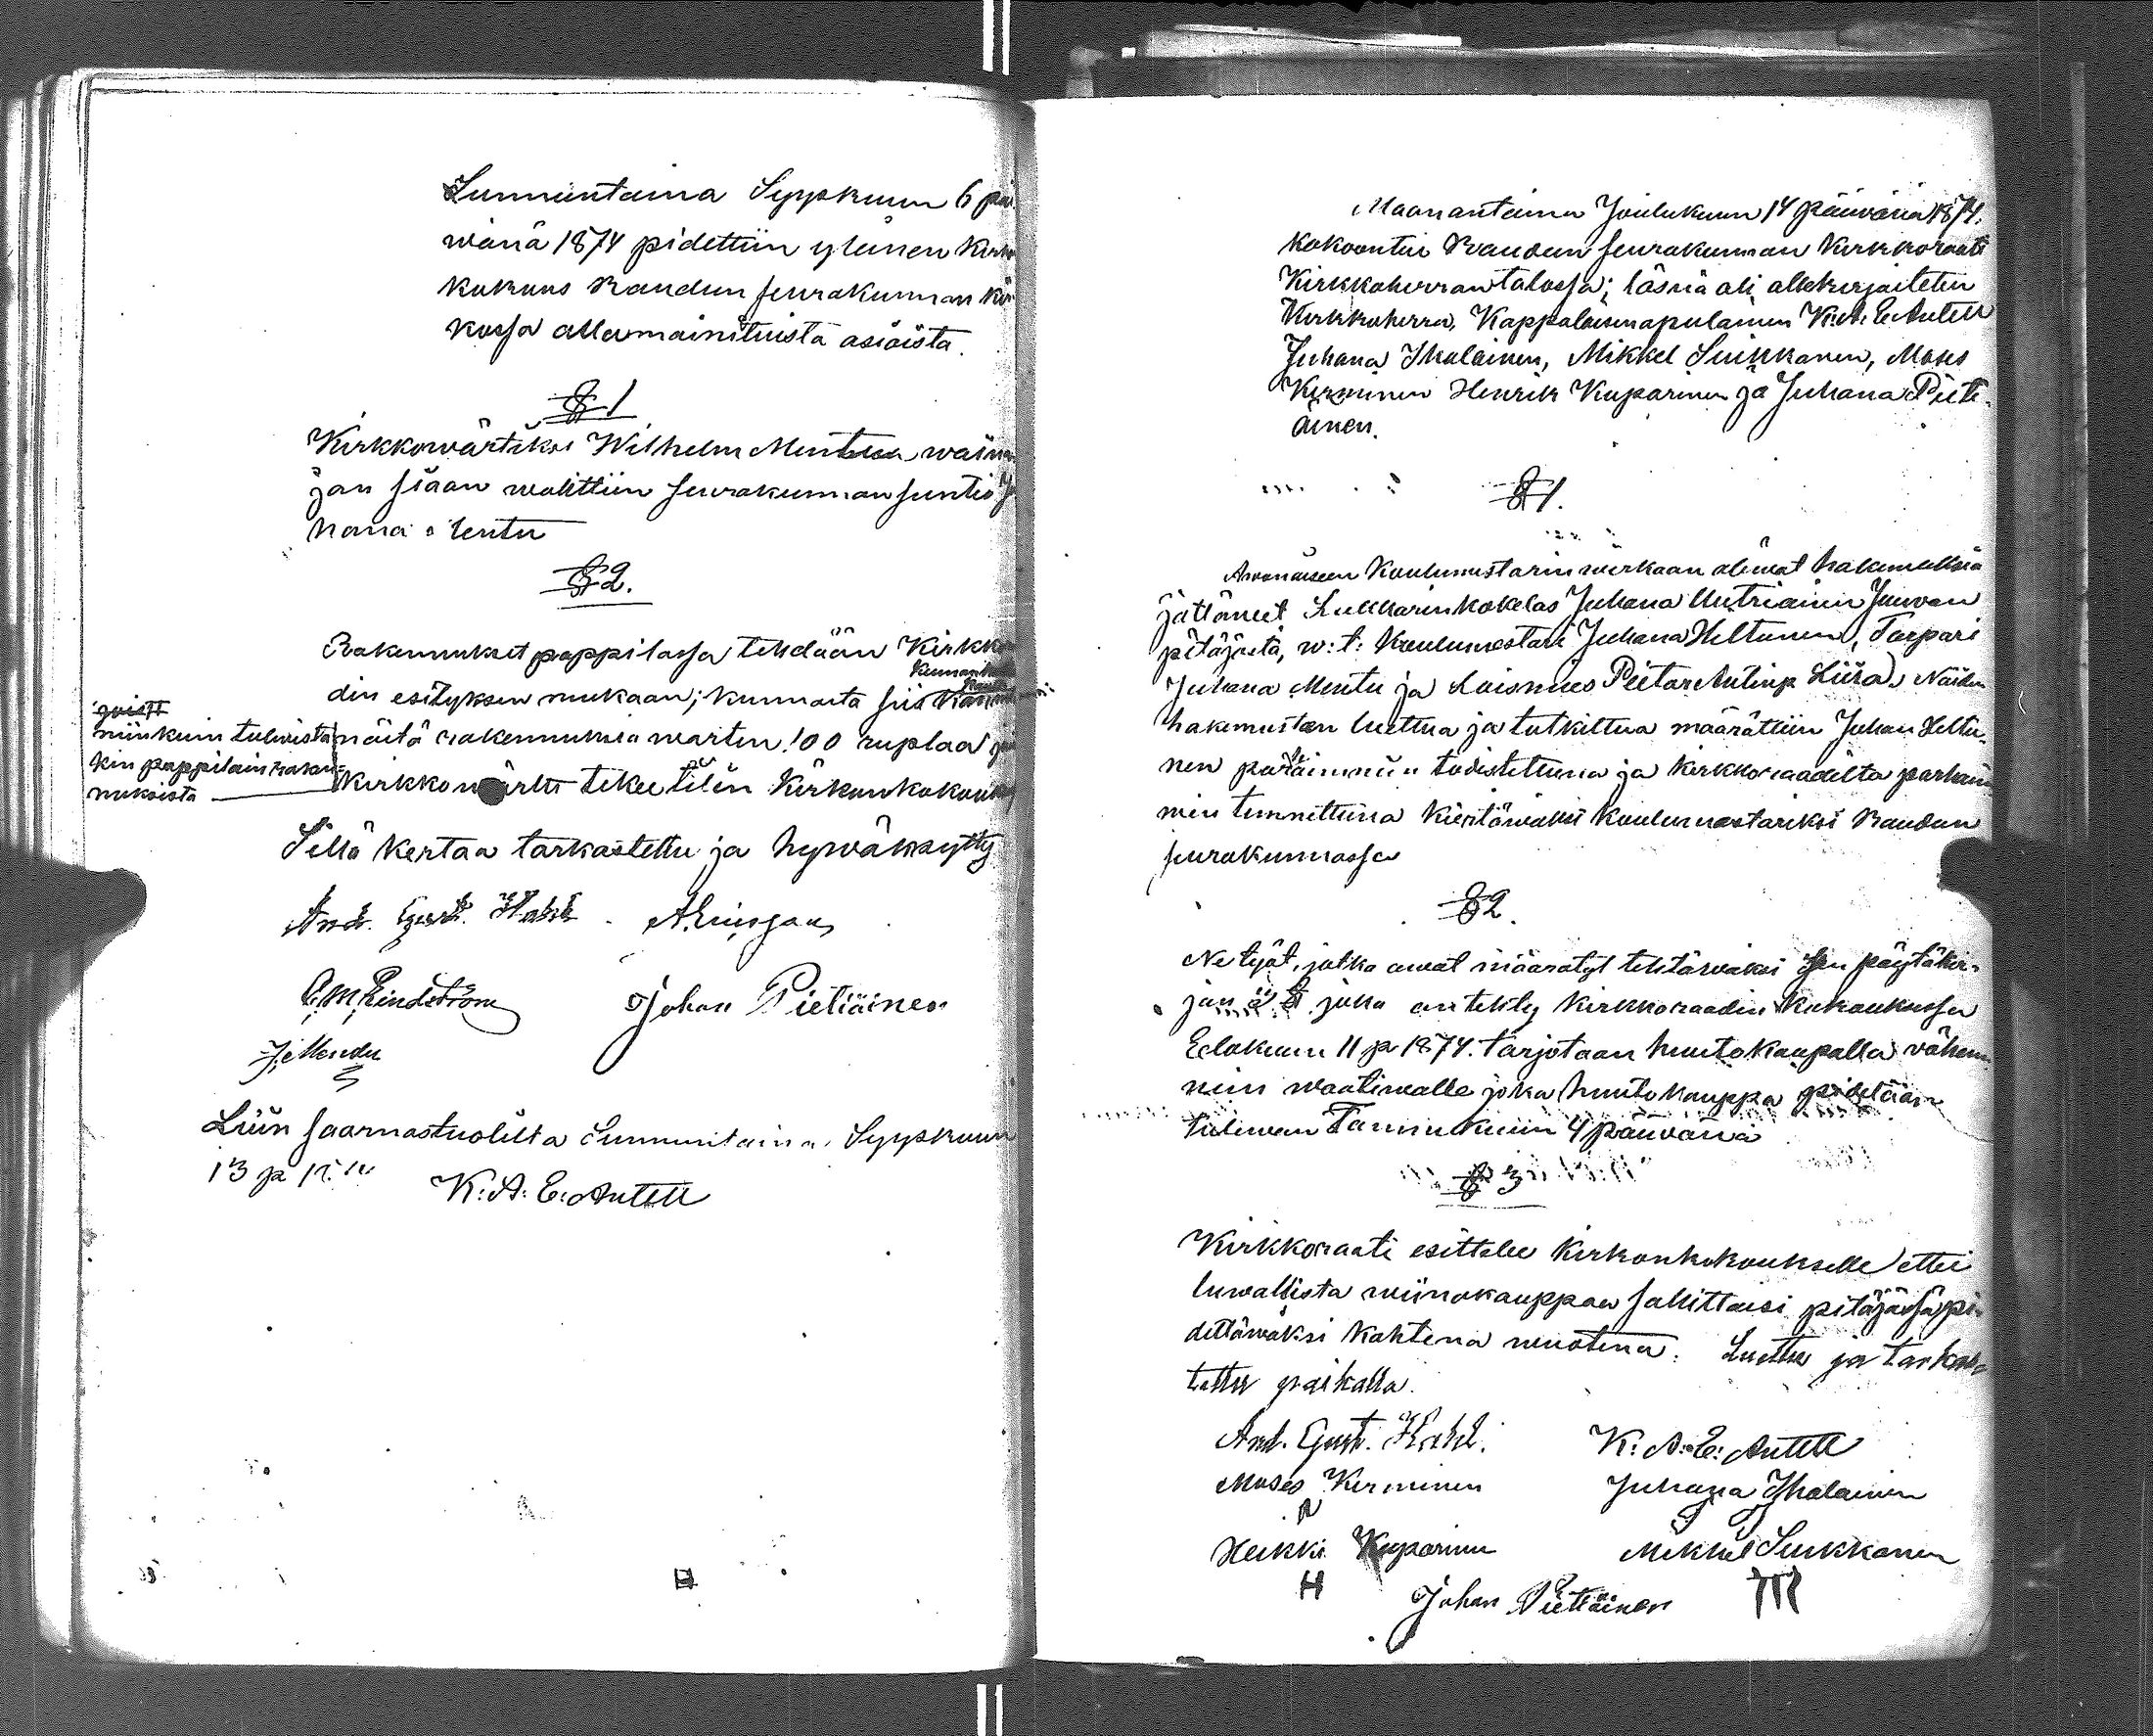 Sunnuntaina Syyskuun 6 päi
wänä 1874 pidettiin yleinen Kirkon
kokous Raudun seurakunnan kir
kossa allamainituista asioista.
§ 1
Kirkkowärtiksi Wilhelm Mentun waina
jan siaan walittiin seurakunnan suntio Ju
hana Mentu
§ 2.
Rakennukset pappilassa tehdään Kirkkoraa
din esityksen mukaan; kunnasta siis
näitä rakennuksia warten 100 ruplaa
joista
niinkuin tulewista
kin pappilain raken-
nuksista
Kirkkowärtti tekee tilin Kirkonkokouksessa
Sillä kertaa tarkastettu ja hywäksytty
And. Gust. Hahl.
C. M. Lindström
Johan Pietiäinen
J. Mendu
Luin saarnastuolilta Sunnuntaina Syyskuun
13 p
K: A: E: Antell
Maanantaina Joulukuun 14 päiwänä 1874.
kokoontui Raudun seurakunnan Kirkkoraati
Kirkkoherran talossa; läsnä oli allekirjoitettu
Kirkkoherra, Kappalaisenapulainen K: A: E: Antell
Juhana Ihalainen, Mikkel Suikkanen, Moses
Kerminen Henrik Kuparinen ja Juhana Pieti-
äinen.
§ 1.
Awonaiseen Koulumestarin wirkaan oliwat hakemuksia
jättäneet Lukkarinkokelas Juhana Autriainen Juwan
pitäjästä, w: t: Koulumestari Juhana Heltunen, Torpari
Juhana Mentu ja Loismies Pietar Antinp. Liira. Näiden
hakemusten luettua ja tutkittua määrättiin Juhan Heltu-
nen parainmin todistettuna ja kirkkoraadilta parhain
min tunnettuna kiertäwäksi koulumestariksi Raudun
seurakunnassa
§ 2.
Ne työt, jotka owat määrätyt tehtäwäksi sen pöytäkir-
jan § joka on tehty kirkkoraadin kokouksessa
Elokuun 11 p 1874. tarjotaan huutokaupalla vähem
min waatiwalle joka huutokauppa pidetään
tulewan Tammikuun 4 päiwänä
§ 3
Kirkkoraati esittelee Kirkonkokoukselle ettei
luwallista wiinakauppaa sallittaisi pitäjässä pi-
dettäwäksi kahtena wuotena. Luettu ja tarkas-
tettu paikalla.
And. Gust. Hahl. K: A: E: Antell
Moses Kerminen Juhana Ihalainen
Heikki Kuparinen Mikkel Suikkanen
H
Johan Pietiäinen